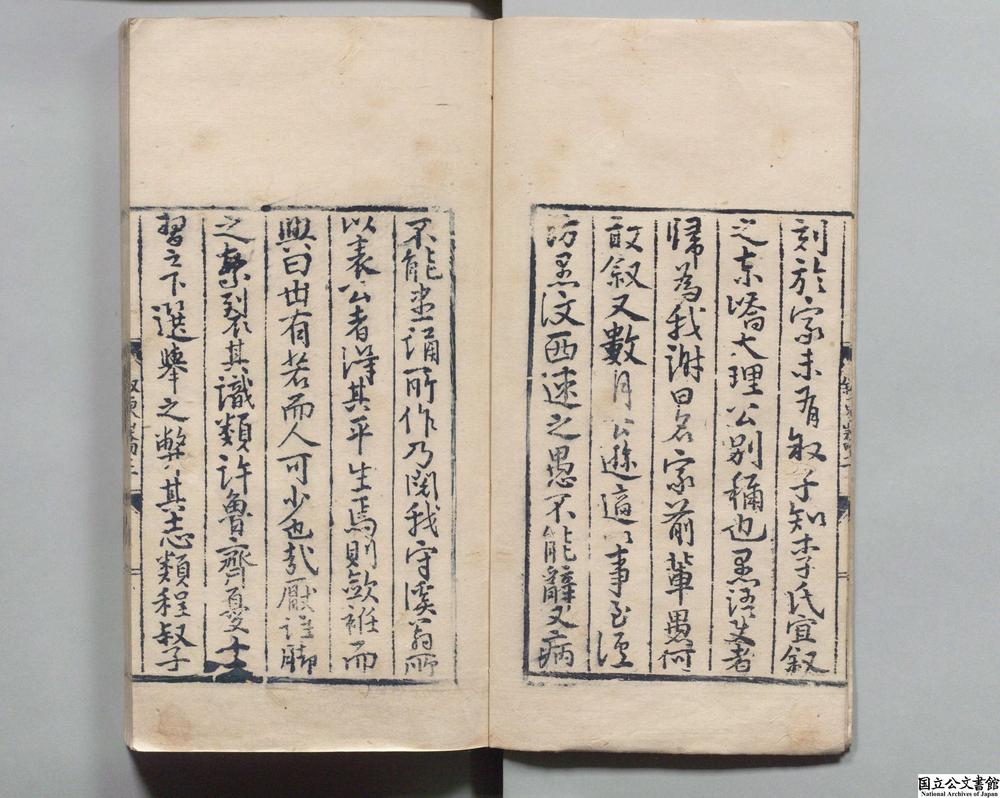 刻於家未有叙子知李氏宜叙
之東嶠大理公别稱也愚語使者
歸為我謝曰名家前輩愚何
敢叙又數月公遜適以事至涇
訪愚汶西速之愚不能辭又病
不能盡誦所作乃閱我守溪翁所
以表公者得其平生焉則歛袵而
興曰世有若而人可少也哉厭詆
之禁裂其識類許魯齊憂士
習之下選舉之弊其志類程叔子
国立公文書館
National Archives of Japan